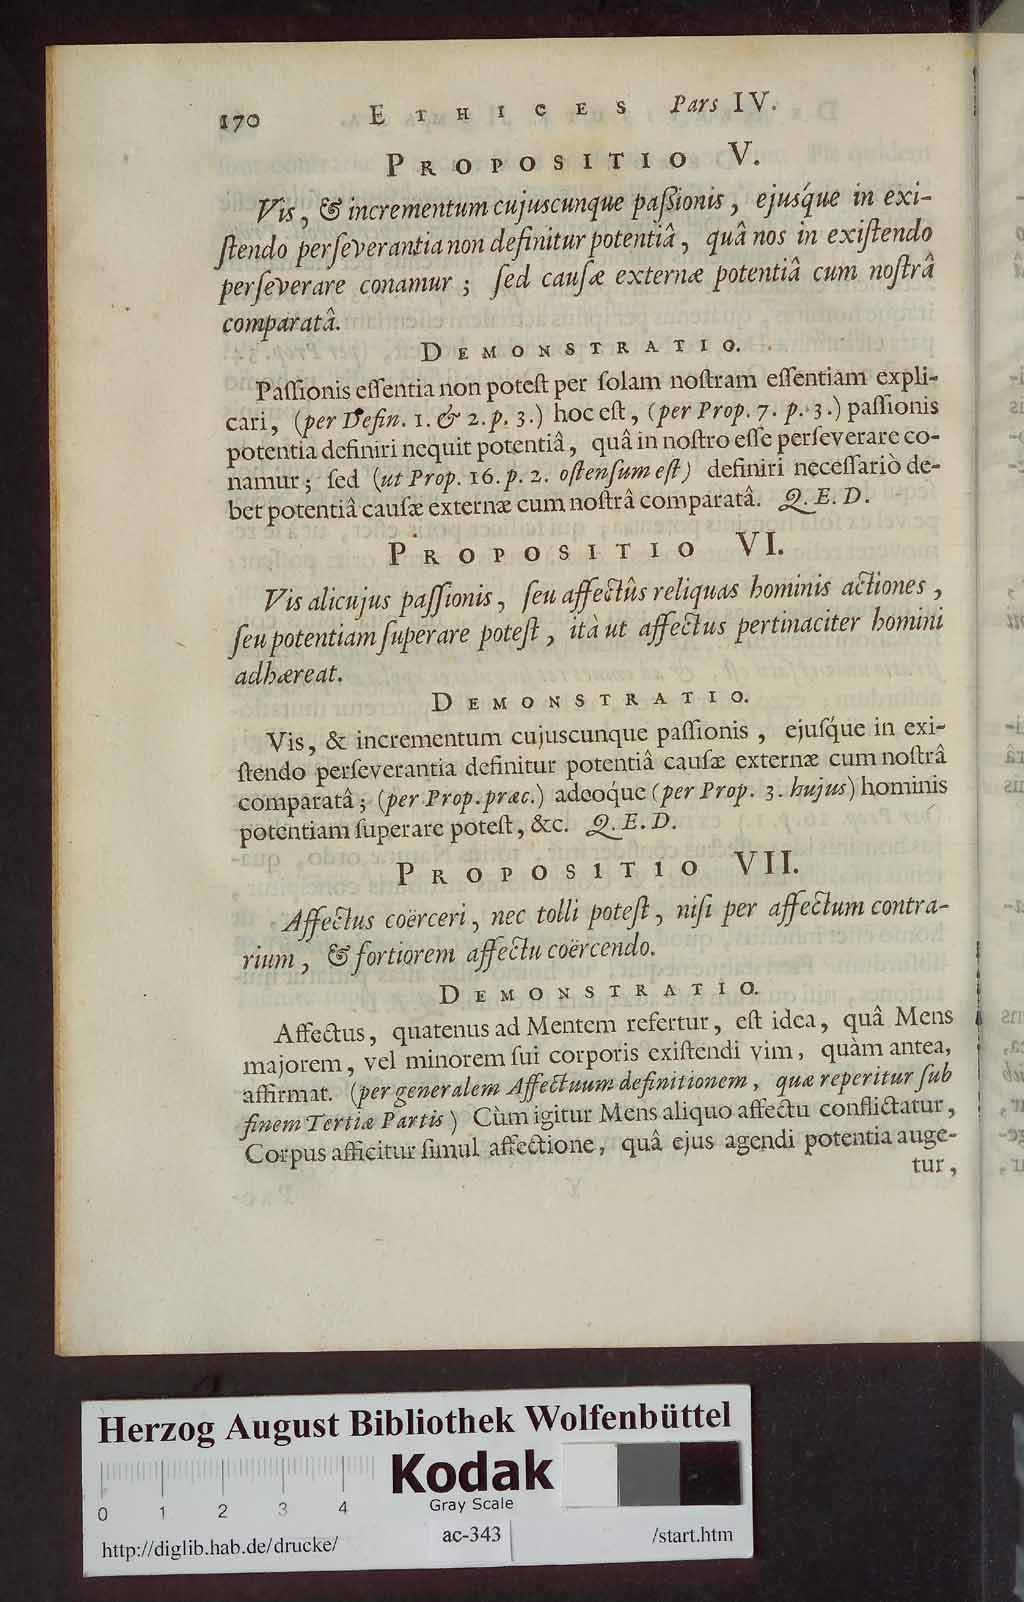 170 ETHICES Pars IV.
PROPOSITIO V.
Vis, & incrementum cujuscunque paſſionis, ejuſque in exi-
ſtendo perſeverantia non definitur potentiâ, quâ nos in exiſtendo
perſeverare conamur; ſed cauſæ externæ potentiâ cum noſtrâ
comparatâ.
DEMONSTRATIO.
Paſſionis eſſentia non poteſt per ſolam noſtram eſſentiam expli-
cari, (per Defin. 1. & 2. p. 3.) hoc eſt, (per Prop. 7. p. 3.) paſſionis
potentia definiri nequit potentiâ, quâ in noſtro eſſe perſeverare co-
namur; ſed (ut Prop. 16. p. 2. oſtenſum eſt) definiri neceſſariò de-
bet potentiâ cauſæ externæ cum noſtrâ comparatâ. Q. E. D.
PROPOSITIO VI.
Vis alicujus paſſionis, ſeu affectûs reliquas hominis actiones,
ſeu potentiam ſuperare poteſt, ità ut affectus pertinaciter homini
adhæreat.
DEMONSTRATIO.
Vis, & incrementum cujuscunque paſſionis, ejuſq́ue in exi-
ſtendo perſeverantia definitur potentiâ cauſæ externæ cum noſtrâ
comparatâ; (per Prop. præc.) adeoq́ue (per Prop. 3. hujus) hominis
potentiam ſuperare poteſt, &c. Q. E. D.
PROPOSITIO VII.
Affectus coërceri, nec tolli poteſt, niſi per affectum contra-
rium, & fortiorem affectu coërcendo.
DEMONSTRATIO.
Affectus, quatenus ad Mentem refertur, eſt idea, quâ Mens
majorem, vel minorem ſui corporis exiſtendi vim, quàm antea,
affirmat. (per generalem Affectuum definitionem, quæ reperitur ſub
finem Tertiæ Partis) Cùm igitur Mens aliquo affectu conflictatur,
Corpus afficitur ſimul affectione, quâ ejus agendi potentia auge-
tur,
Herzog August Bibliothek Wolfenbüttel
Kodak
Gray Scale
0 1 2 3 4
http://diglib.hab.de/drucke/ ac-343 /start.htm